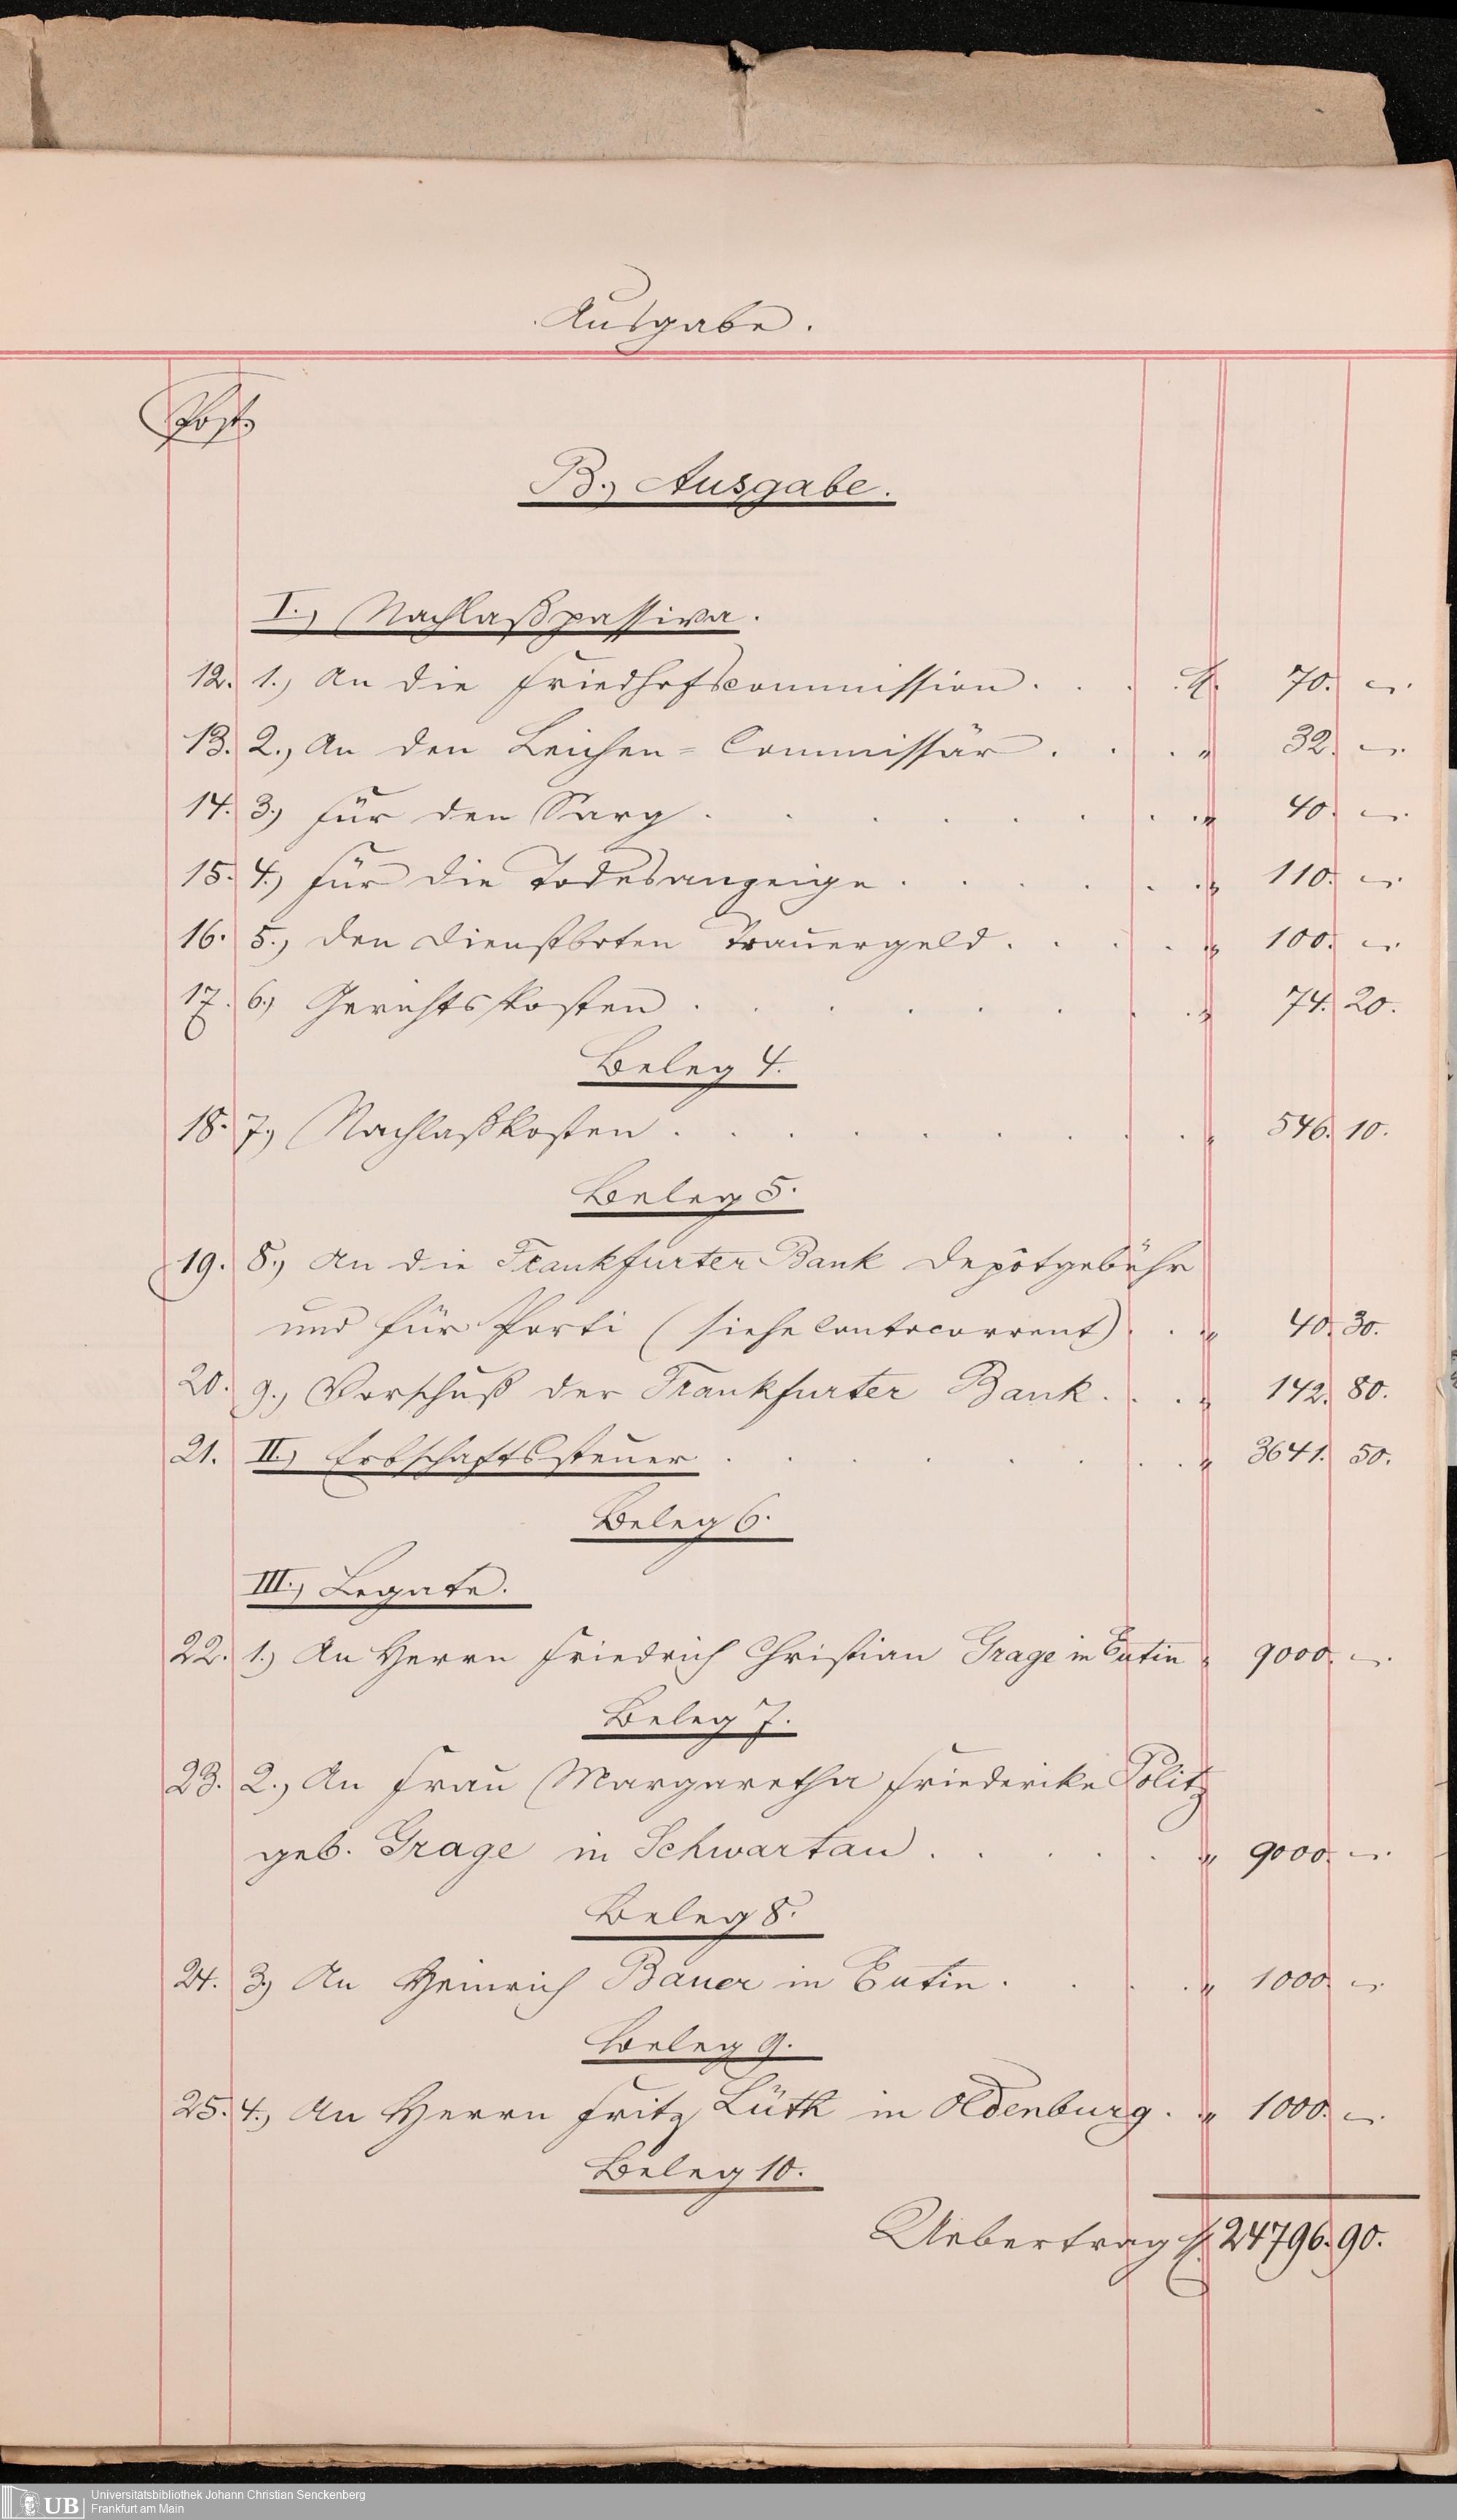 Ausgabe.
Post.
B.) Ausgabe.
I.) Nachlaßpassiva.
12. 1.) An die Friedhofscommission . . . . M. 70. —.
13. 2.) An den Leichen-Commissär . . . . " 32. —.
14. 3.) für den Sarg . . . . . . . . " 40. —.
15. 4.) für die Todesanzeige . . . . . . " 110. —.
16. 5.) den Dienstboten Trauergeld . . . . " 100. —.
17. 6.) Gerichtskosten . . . . . . . . " 74. 20.
Beleg 4.
18. 7.) Nachlaßkosten . . . . . . . . " 546. 10.
Beleg 5.
19. 8.) An die Frankfurter Bank Depôtgebühr
und für Porti (siehe Contocorrent) . . " 40. 30.
20. 9.) Vorschuß der Frankfurter Bank . . . " 142. 80.
21. II.) Erbschaftssteuer . . . . . . . " 3641. 50.
Beleg 6.
III.) Legate.
22. 1.) An Herrn Friedrich Christian Grage in Eutin " 9000. —.
Beleg 7.
23. 2.) An Frau Margaretha Friederike Politz
geb. Grage in Schwartau . . . . . " 9000. —.
Beleg 8.
24. 3.) An Heinrich Bauer in Eutin . . . . " 1000. —.
Beleg 9.
25. 4.) An Herrn Fritz Lüth in Oldenburg . " 1000. —.
Beleg 10.
Uebertrag M. 24796. 90.
UB
Universitätsbibliothek Johann Christian Senckenberg
Frankfurt am Main